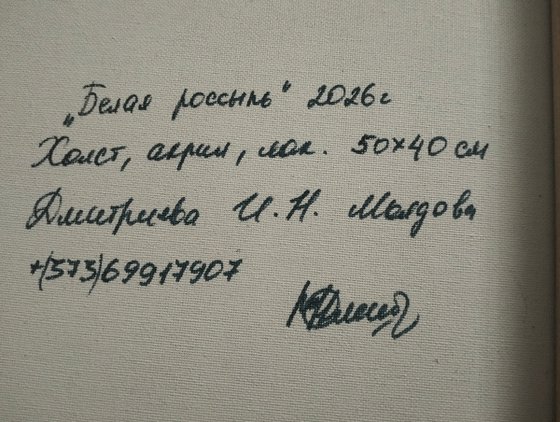 „Белая россыпь" 2026г
Холст, акрил, лак. 50×40 см
Дмитриева И.Н. Молдова
+(373)69917907